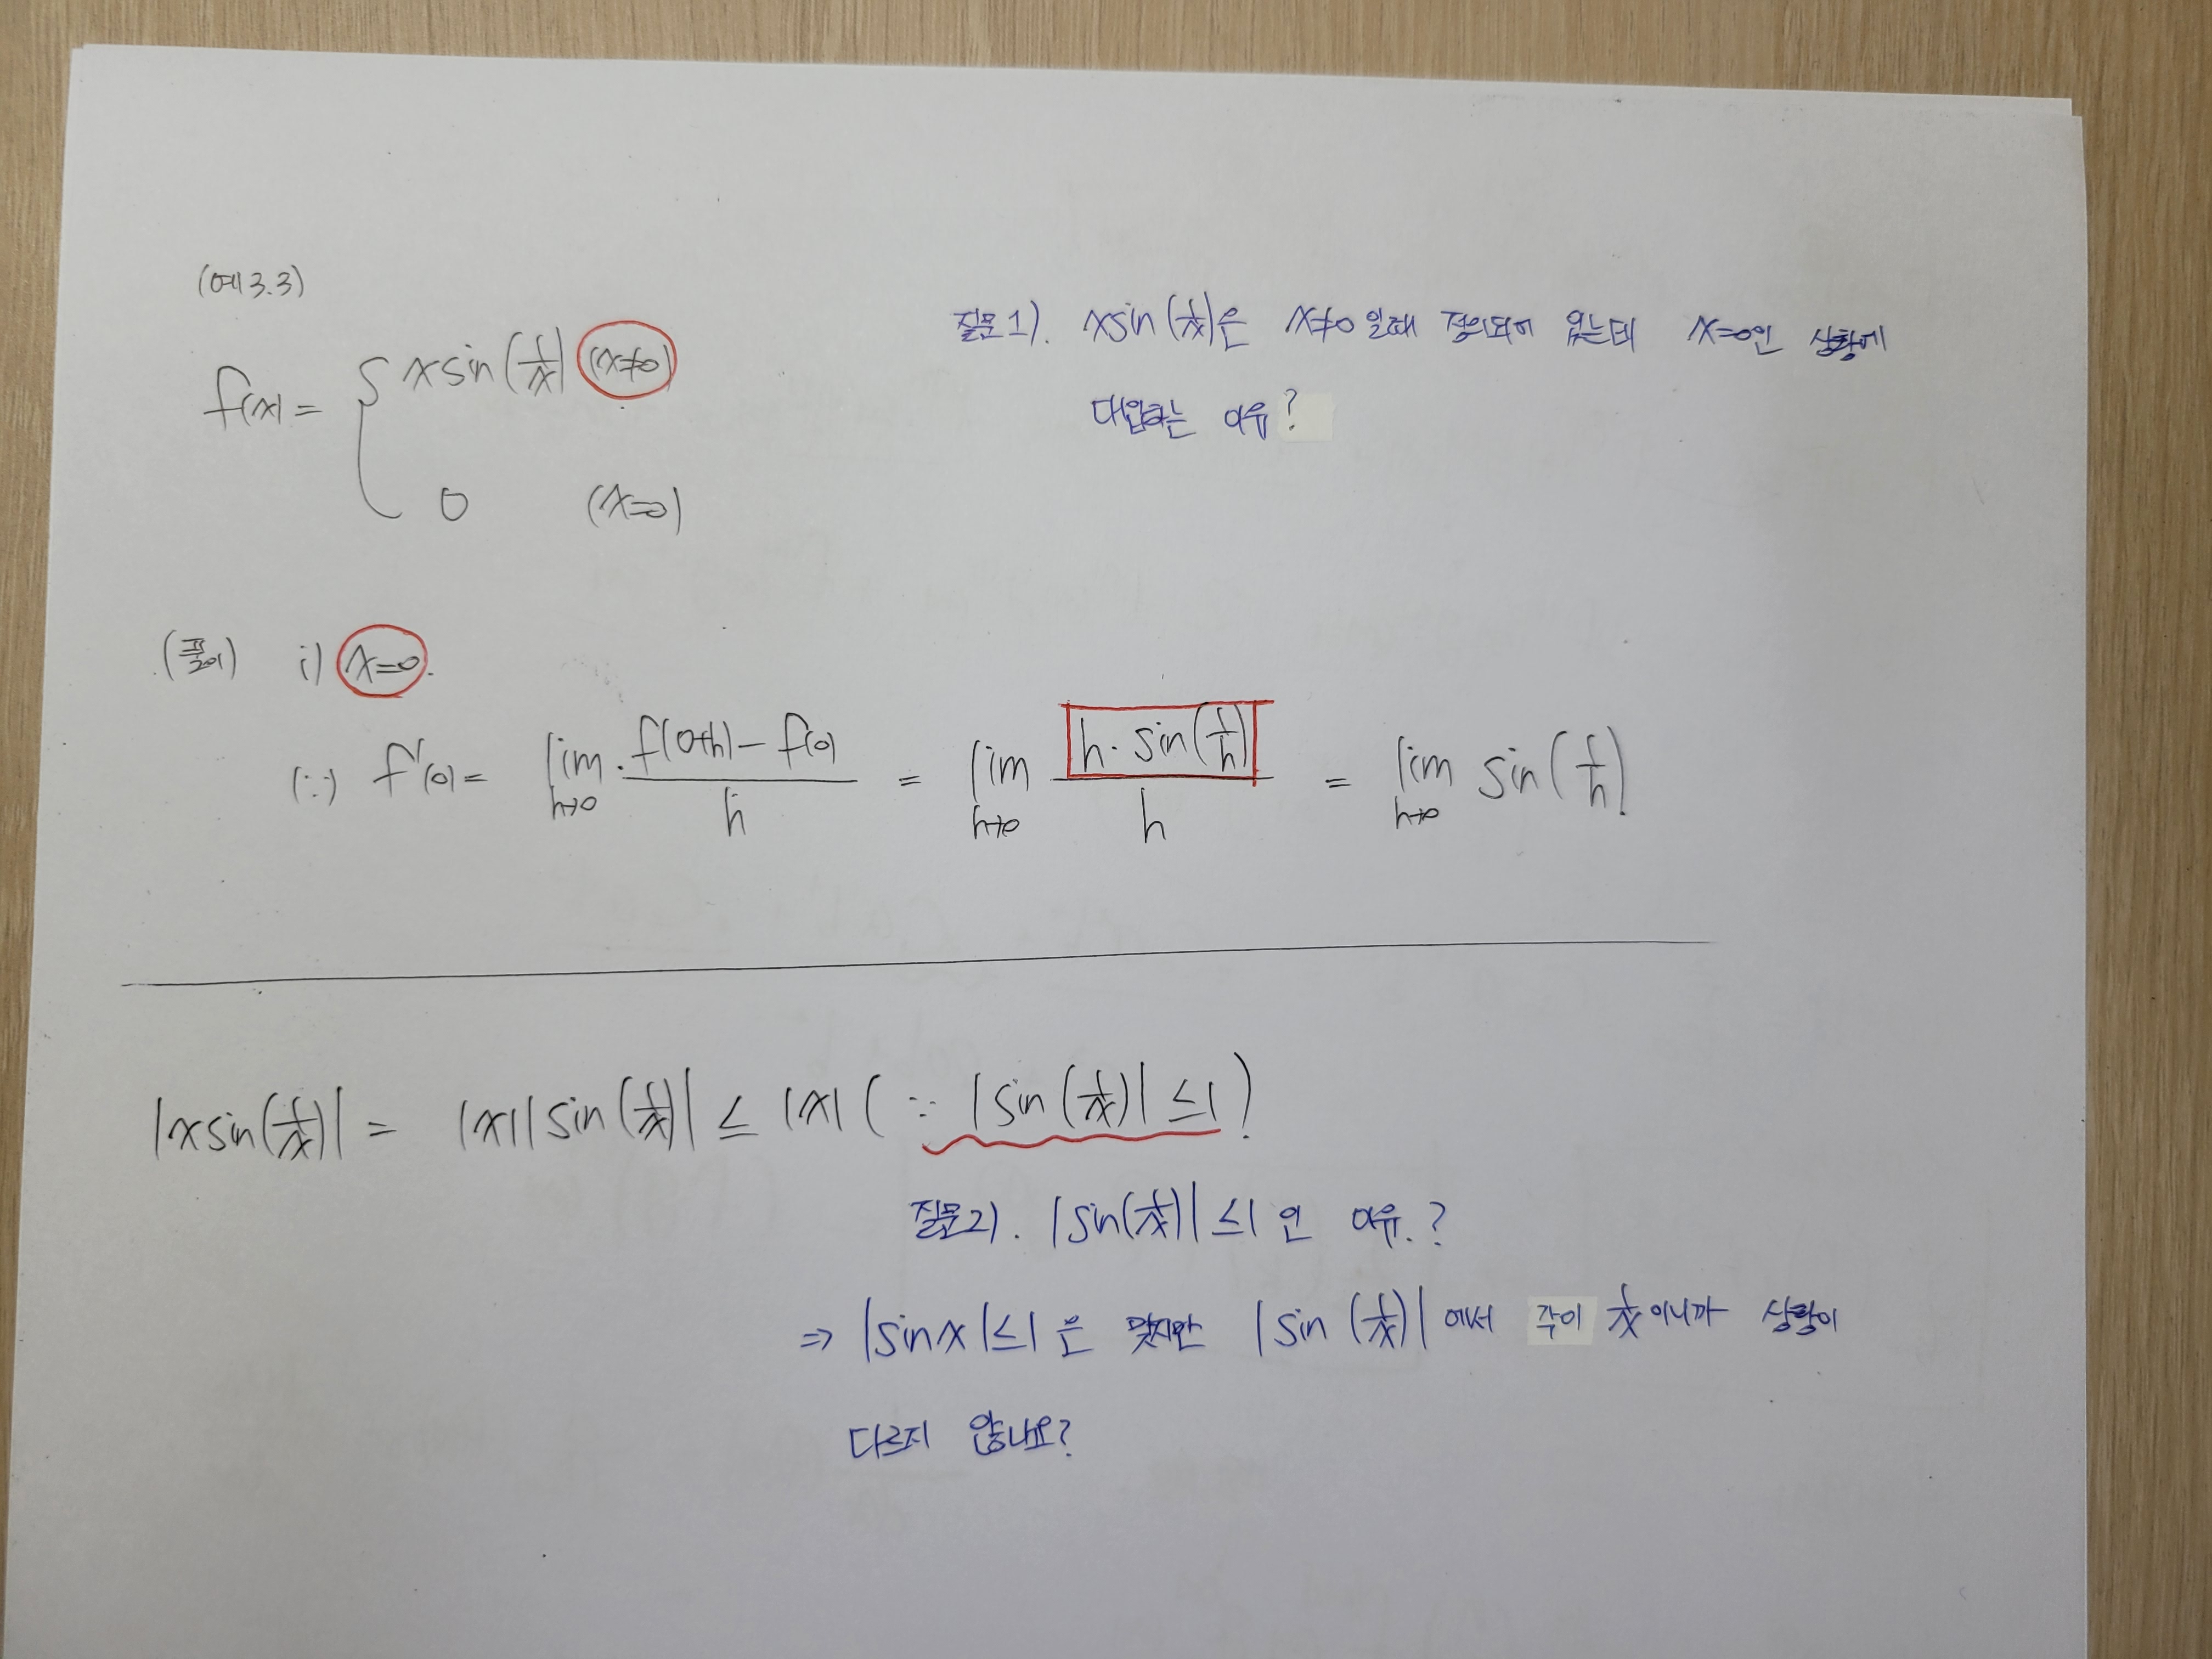 (예 3.3)
질문1). xsin(1/x)은 x≠0 일때 정의되어 있는데 x=0인 상황에
대입하는 이유?
f(x) = { xsin(1/x) (x≠0)
0 (x=0)
(풀이) i) x=0.
(∵) f'(0) = lim h→0 f(0+h)-f(0) / h = lim h→0 h·sin(1/h) / h = lim h→0 sin(1/h)
|xsin(1/x)| = |x||sin(1/x)| ≤ |x| (∵ |sin(1/x)| ≤1)
질문2). |sin(1/x)| ≤1 인 이유.?
⇒ |sinx|≤1 은 맞지만 |sin(1/x)| 에서 각이 1/x이니까 상황이
다르지 않나요?